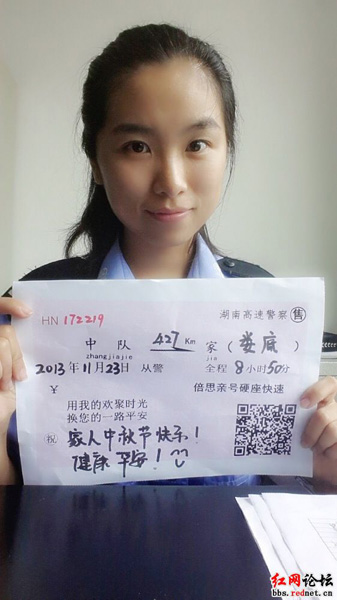 HN 172219 湖南高速警察 售
中队 427 Km 家(娄底)
zhangjiajie jia
2013年11月23日 从警 全程8小时50分
¥ 倍思亲号硬座快速
用我的欢聚时光
换您的一路平安
祝 家人中秋节快乐!
健康平安!
红网论坛
bbs.rednet.cn